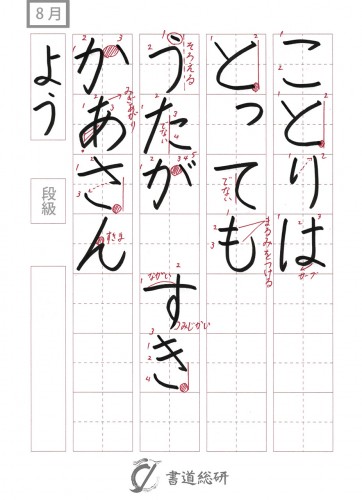 8月
ことりは
カーブ
とっても
でない
まるみをつける
うたが すき
そろえる
でない
ながい
みじかい
かあさん
みぎあがり
すきま
よう
段級
書道総研